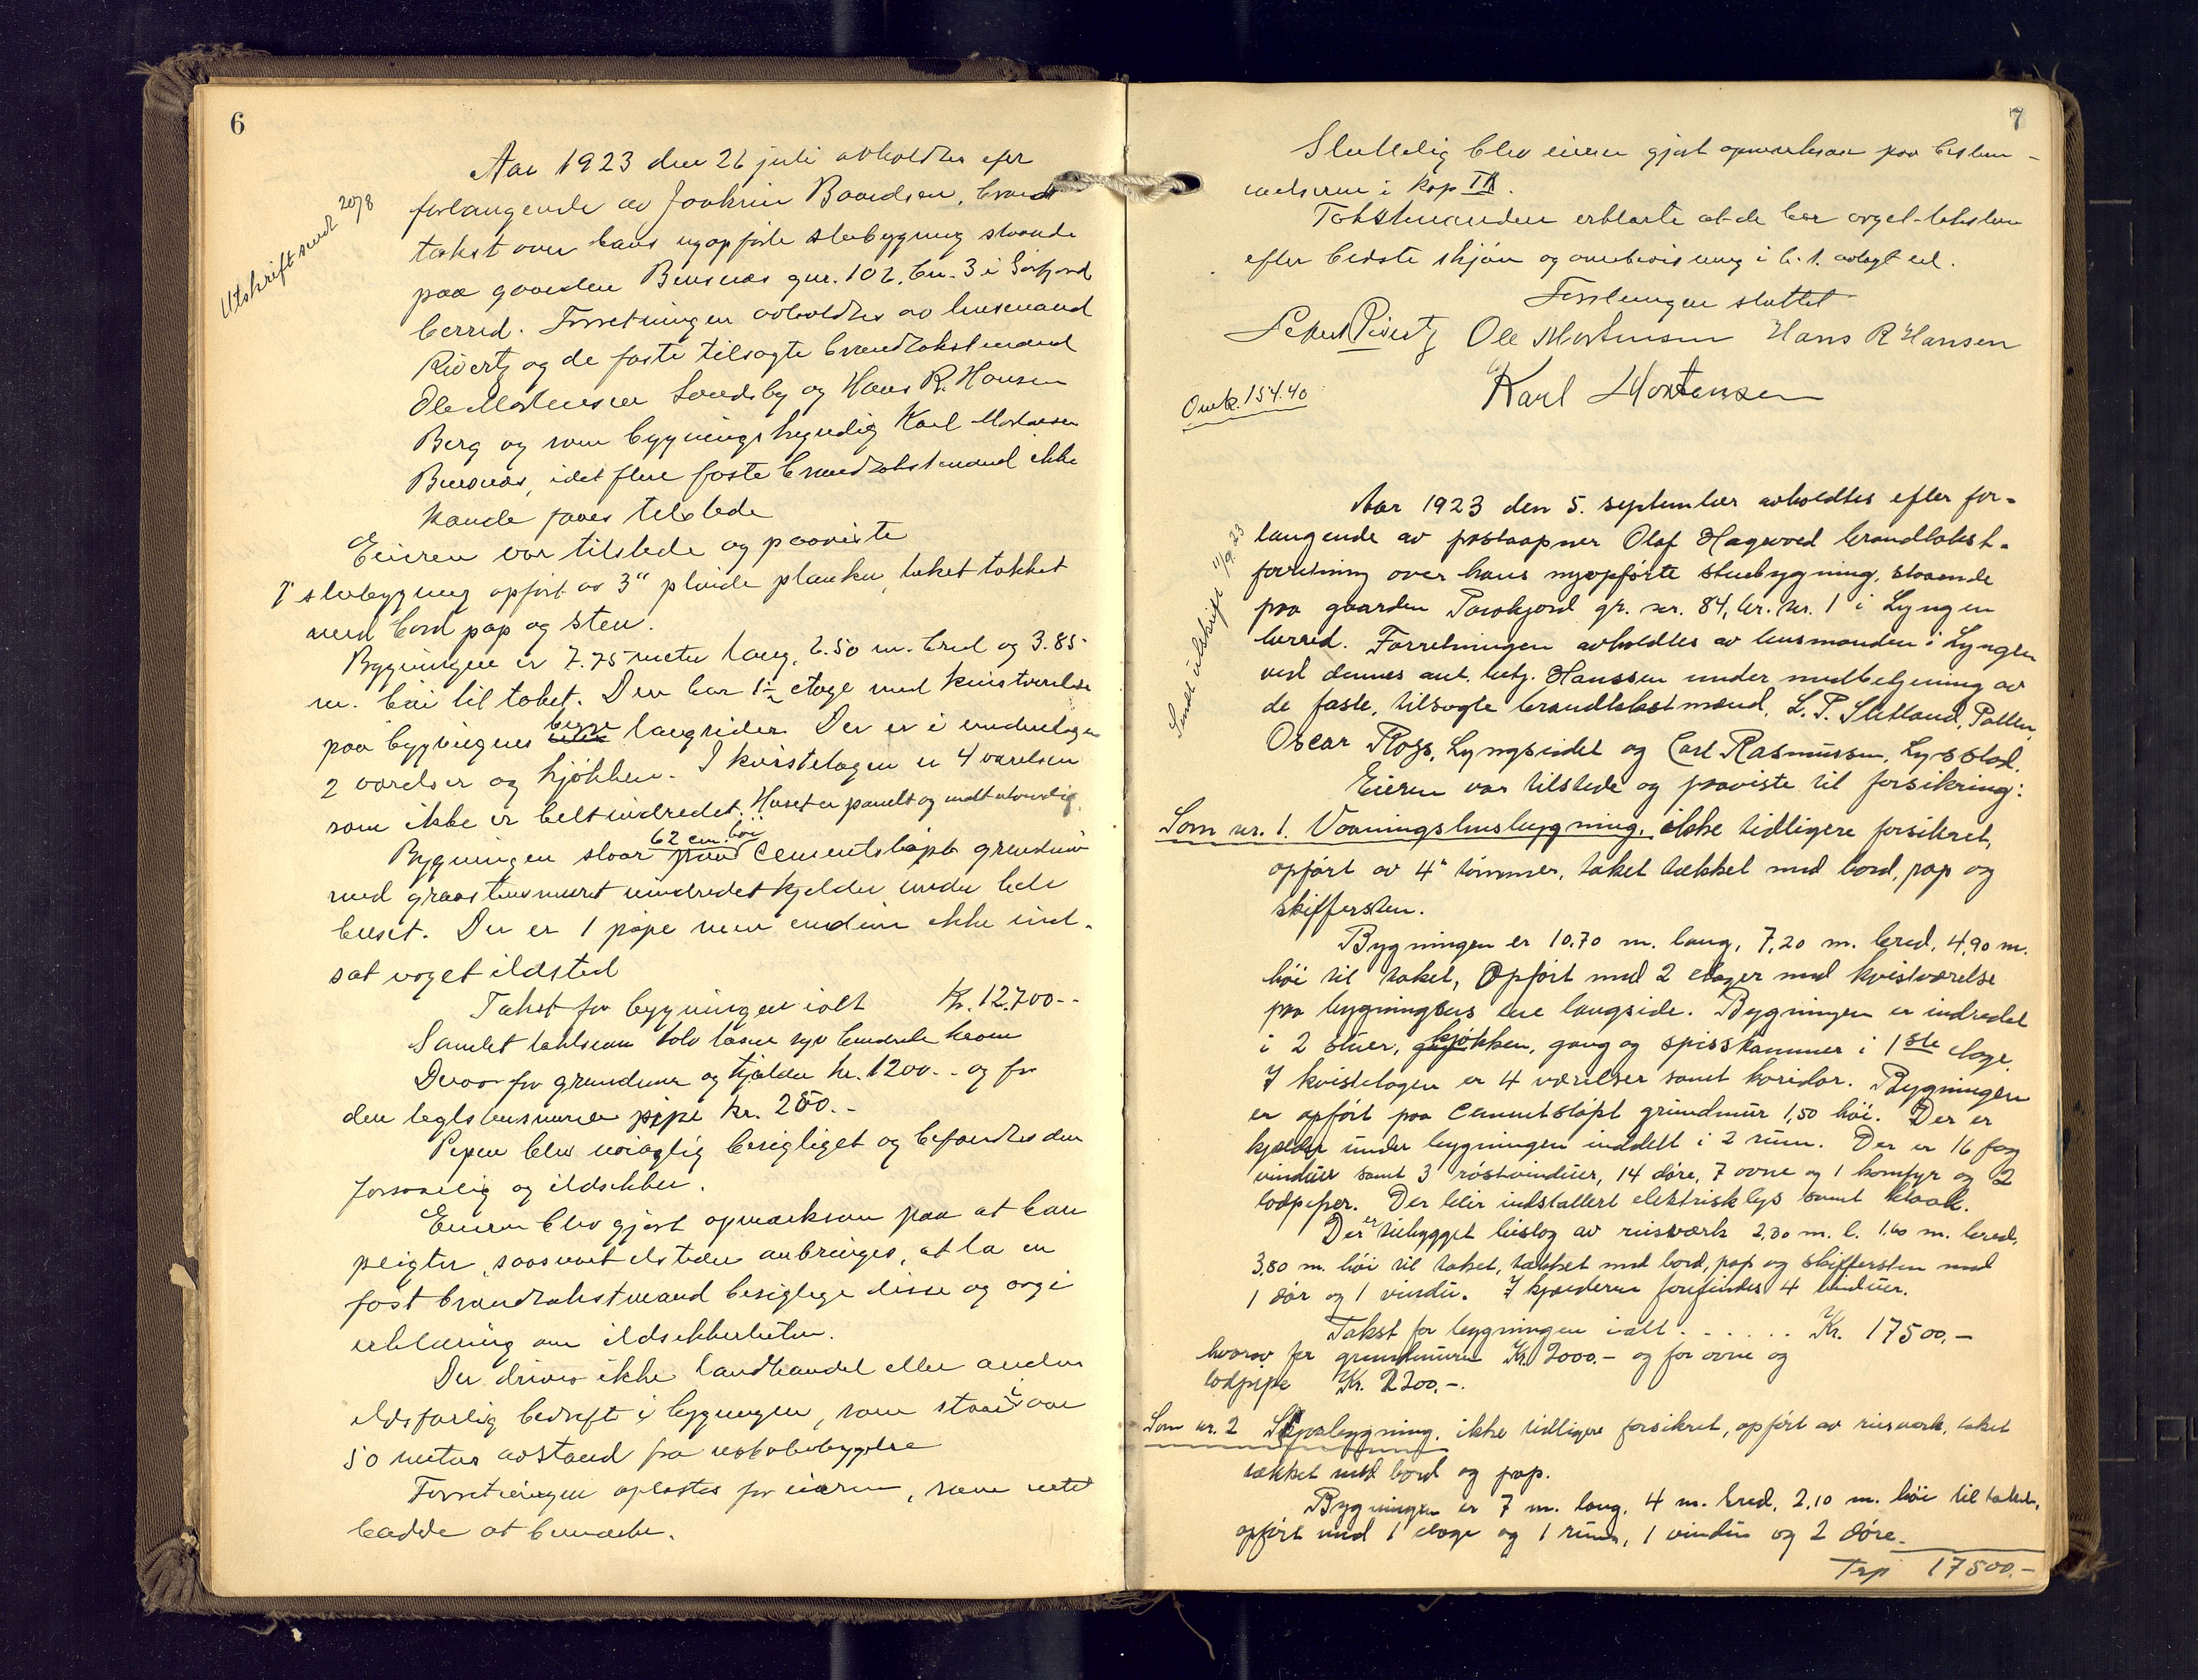 6
Utskrift sendt 20/8
Aar 1923 den 26 juli avholdtes efter
forlangende av Joakim Baardsen, brand
takst over hans nyopførte stubygning staaende
paa gaarden Bensnes gnr. 102, bn. 3 i Sørfjord
herred. Forretningen avholdtes av lensmand
Rivertz og de faste tilsagte brandtakstmænd
Ole Mortensen Sandsby og Hans R. Hansen
Berg og som bygningskyndig Karl Mortensen
Bensnes, idet flere faste brandtakstmænd ikke
kunde faaes tilstede
Eieren var tilstede og paaviste
1 stubygning opført av 3" pløide planker, taket tækket
med bord pap og sten.
Bygningen er 7.75 meter lang, 6.50 m. bred og 3.85
m. høi til taket. Den har 1½ etage med kvistværelse
paa bygningens begge langsider. Der er i underetagen
2 værelser og kjøkken. I kvistetagen er 4 værelser
som ikke er helt indredet. Huset er panelt og malt utvendig.
Bygningen staar paa 62 cm. høi cementstøpt grundmur
med graastensmuret uindredet kjelder under hele
huset. Der er 1 pipe men endnu ikke ind-
sat noget ildsted
Takst for bygningen ialt Kr. 12.700.-
Samlet takstsum tolv tusen syv hundrede kroner
Derav for grundmur og kjælder kr. 1200.- og for
den teglstensmurte pipe kr. 280.-
Pipen blev nøiagtig besigtiget og befandtes den
forsvarlig og ildsikker.
Eieren blev gjort opmærksom paa at han
pligter, saasnart ildsteder anbringes, at la en
fast brandtakstmand besigtige disse og avgi
erklæring om ildsikkerheten.
Der drives ikke landhandel eller anden
ildsfarlig bedrift i bygningen, som staar i over
50 meters avstand fra nabobebyggelse
Forretningen oplæstes for eieren, som intet
hadde at bemerke.
7
Sluttelig blev eieren gjort opmerksom paa bestem-
melserne i kap IX.
Takstmændene erklærte at de har avgit taksten
efter bedste skjøn og overbevisning i h. t. avlagt ed.
Forretningen sluttet
Rivertz Ole Mortensen Hans R Hansen
Karl Mortensen
Omk. 154.40
Sendt utskrift 11/9.23
Aar 1923 den 5. september avholdtes efter for-
langende av postaapner Olaf Hagevold brandtakst-
forretning over hans nyopførte stuebygning, staaende
paa gaarden Parakjord gr. nr. 84, br. nr. 1 i Lyngen
herred. Forretningen avholdtes av lensmanden i Lyngen
ved dennes aut. betj. Hanssen under medbetjening av
de faste, tilsagte brandtakstmænd, L. P. Sletland, Pollen,
Oscar Flogs, Lyngseidet og Carl Rasmussen, Lysstad.
Eieren var tilstede og paaviste til forsikring:
Som nr. 1. Vaaningshusbygning, ikke tidligere forsikret,
opført av 4" tømmer, taket tækket med bord, pap og
skiffersten.
Bygningen er 10.70 m. lang, 7,20 m. bred, 4,90 m.
høi til taket, Opført med 2 etager med kvistværelse
paa bygningens ene langside. Bygningen er indredet
i 2 stuer, kjøkken, gang og spisskammer i 1ste etage.
I kvistetagen er 4 værelser samt koridor. Bygningen
er opført paa cementstøpt grundmur 1,50 høi. Der er
kjælder under bygningen inddelt i 2 rum. Der er 16 fag
vinduer samt 3 røstvinduer, 14 døre, 7 ovne og 1 komfyr og 2
lodpiper. Der blir indstallert elektrisk lys samt kloak.
Der er tilbygget bislag av reisverk 2,30 m. l. 1.60 m. bred,
3,80 m. høi til taket, tækket med bord, pap og skiffersten med
1 dør og 1 vindu. I kjælderen forefindes 4 vinduer.
Takst for bygningen ialt . . . . . . Kr. 17500.-
hvorav for grundmuren Kr. 2000.- og for ovne og
lodpipe Kr. 2200.-.
Som nr. 2 Skjaabygning, ikke tidligere forsikret, opført av reisverk, taket
tækket med bord og pap.
Bygningen er 7 m. lang, 4 m. bred, 2,10 m. høi til taket,
opført med 1 etage og 1 rum, 1 vindu og 2 døre.
Trp 17500.-